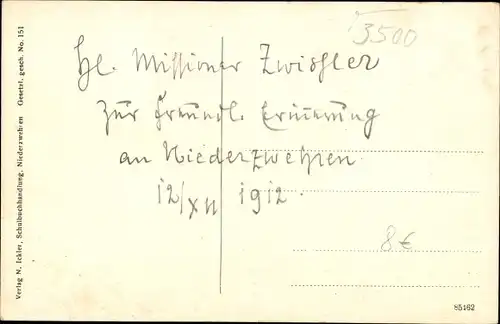 3500
Hl. Missioner Zwissler
zur freundl. Erinnerung
an Niederzwehren
12/XII 1912.
8€
Verlag N. Ickler, Schulbuchhandlung, Niederzwehren Gesetzl. gesch. No. 151
85462